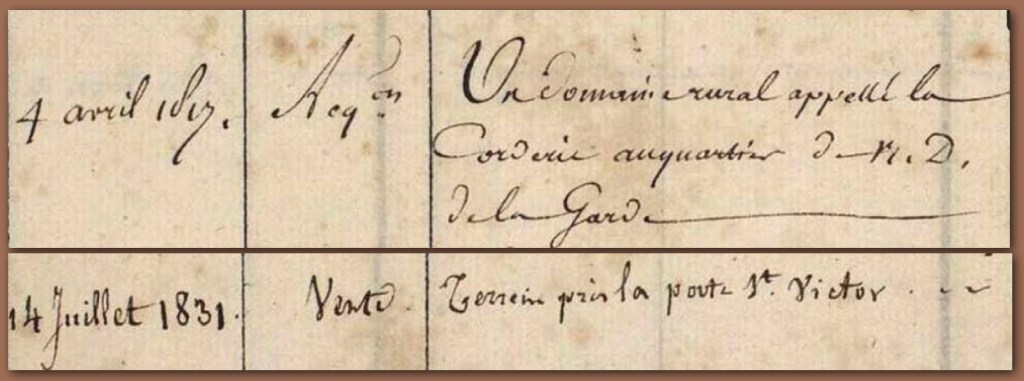 4 avril 1817.
Acq.on
Un domaine rural appellé la
Corderie au quartier de N. D.
de la Garde
14 Juillet 1831.
Vente
Terrein près la porte St. Victor.